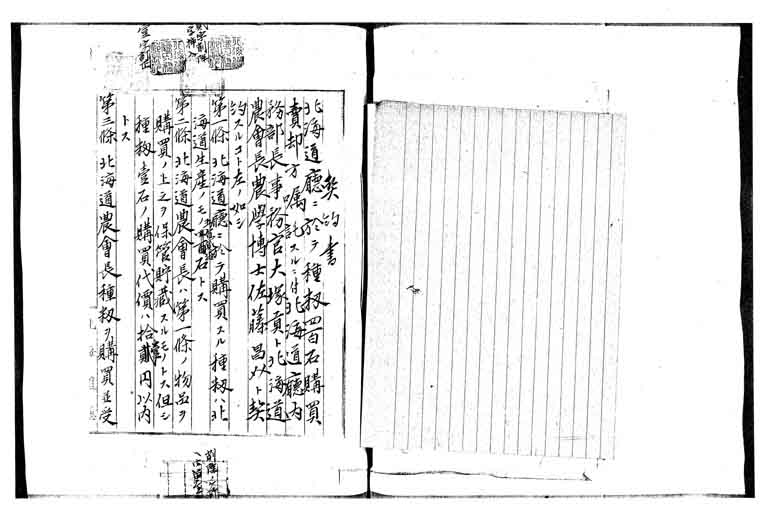 契約書
北海道廳ニ於テ種籾四百石購買
賣却方嘱託スルニ付北海道廳内
務部長事務官大塚貢ト北海道
農會長農學博士佐藤昌介ト契
約スルコト左ノ如シ
第一條 北海道廳ニ於テ購買スル種籾ハ北
海道生産ノモノ 石トス
第二條 北海道農會長ハ第一條ノ物品ヲ
購買ノ上之ヲ保管貯藏スルモノトス但シ
種籾壹石ノ購買代價ハ拾貳円以内
トス
第三條 北海道農會長種籾ヲ購買並受